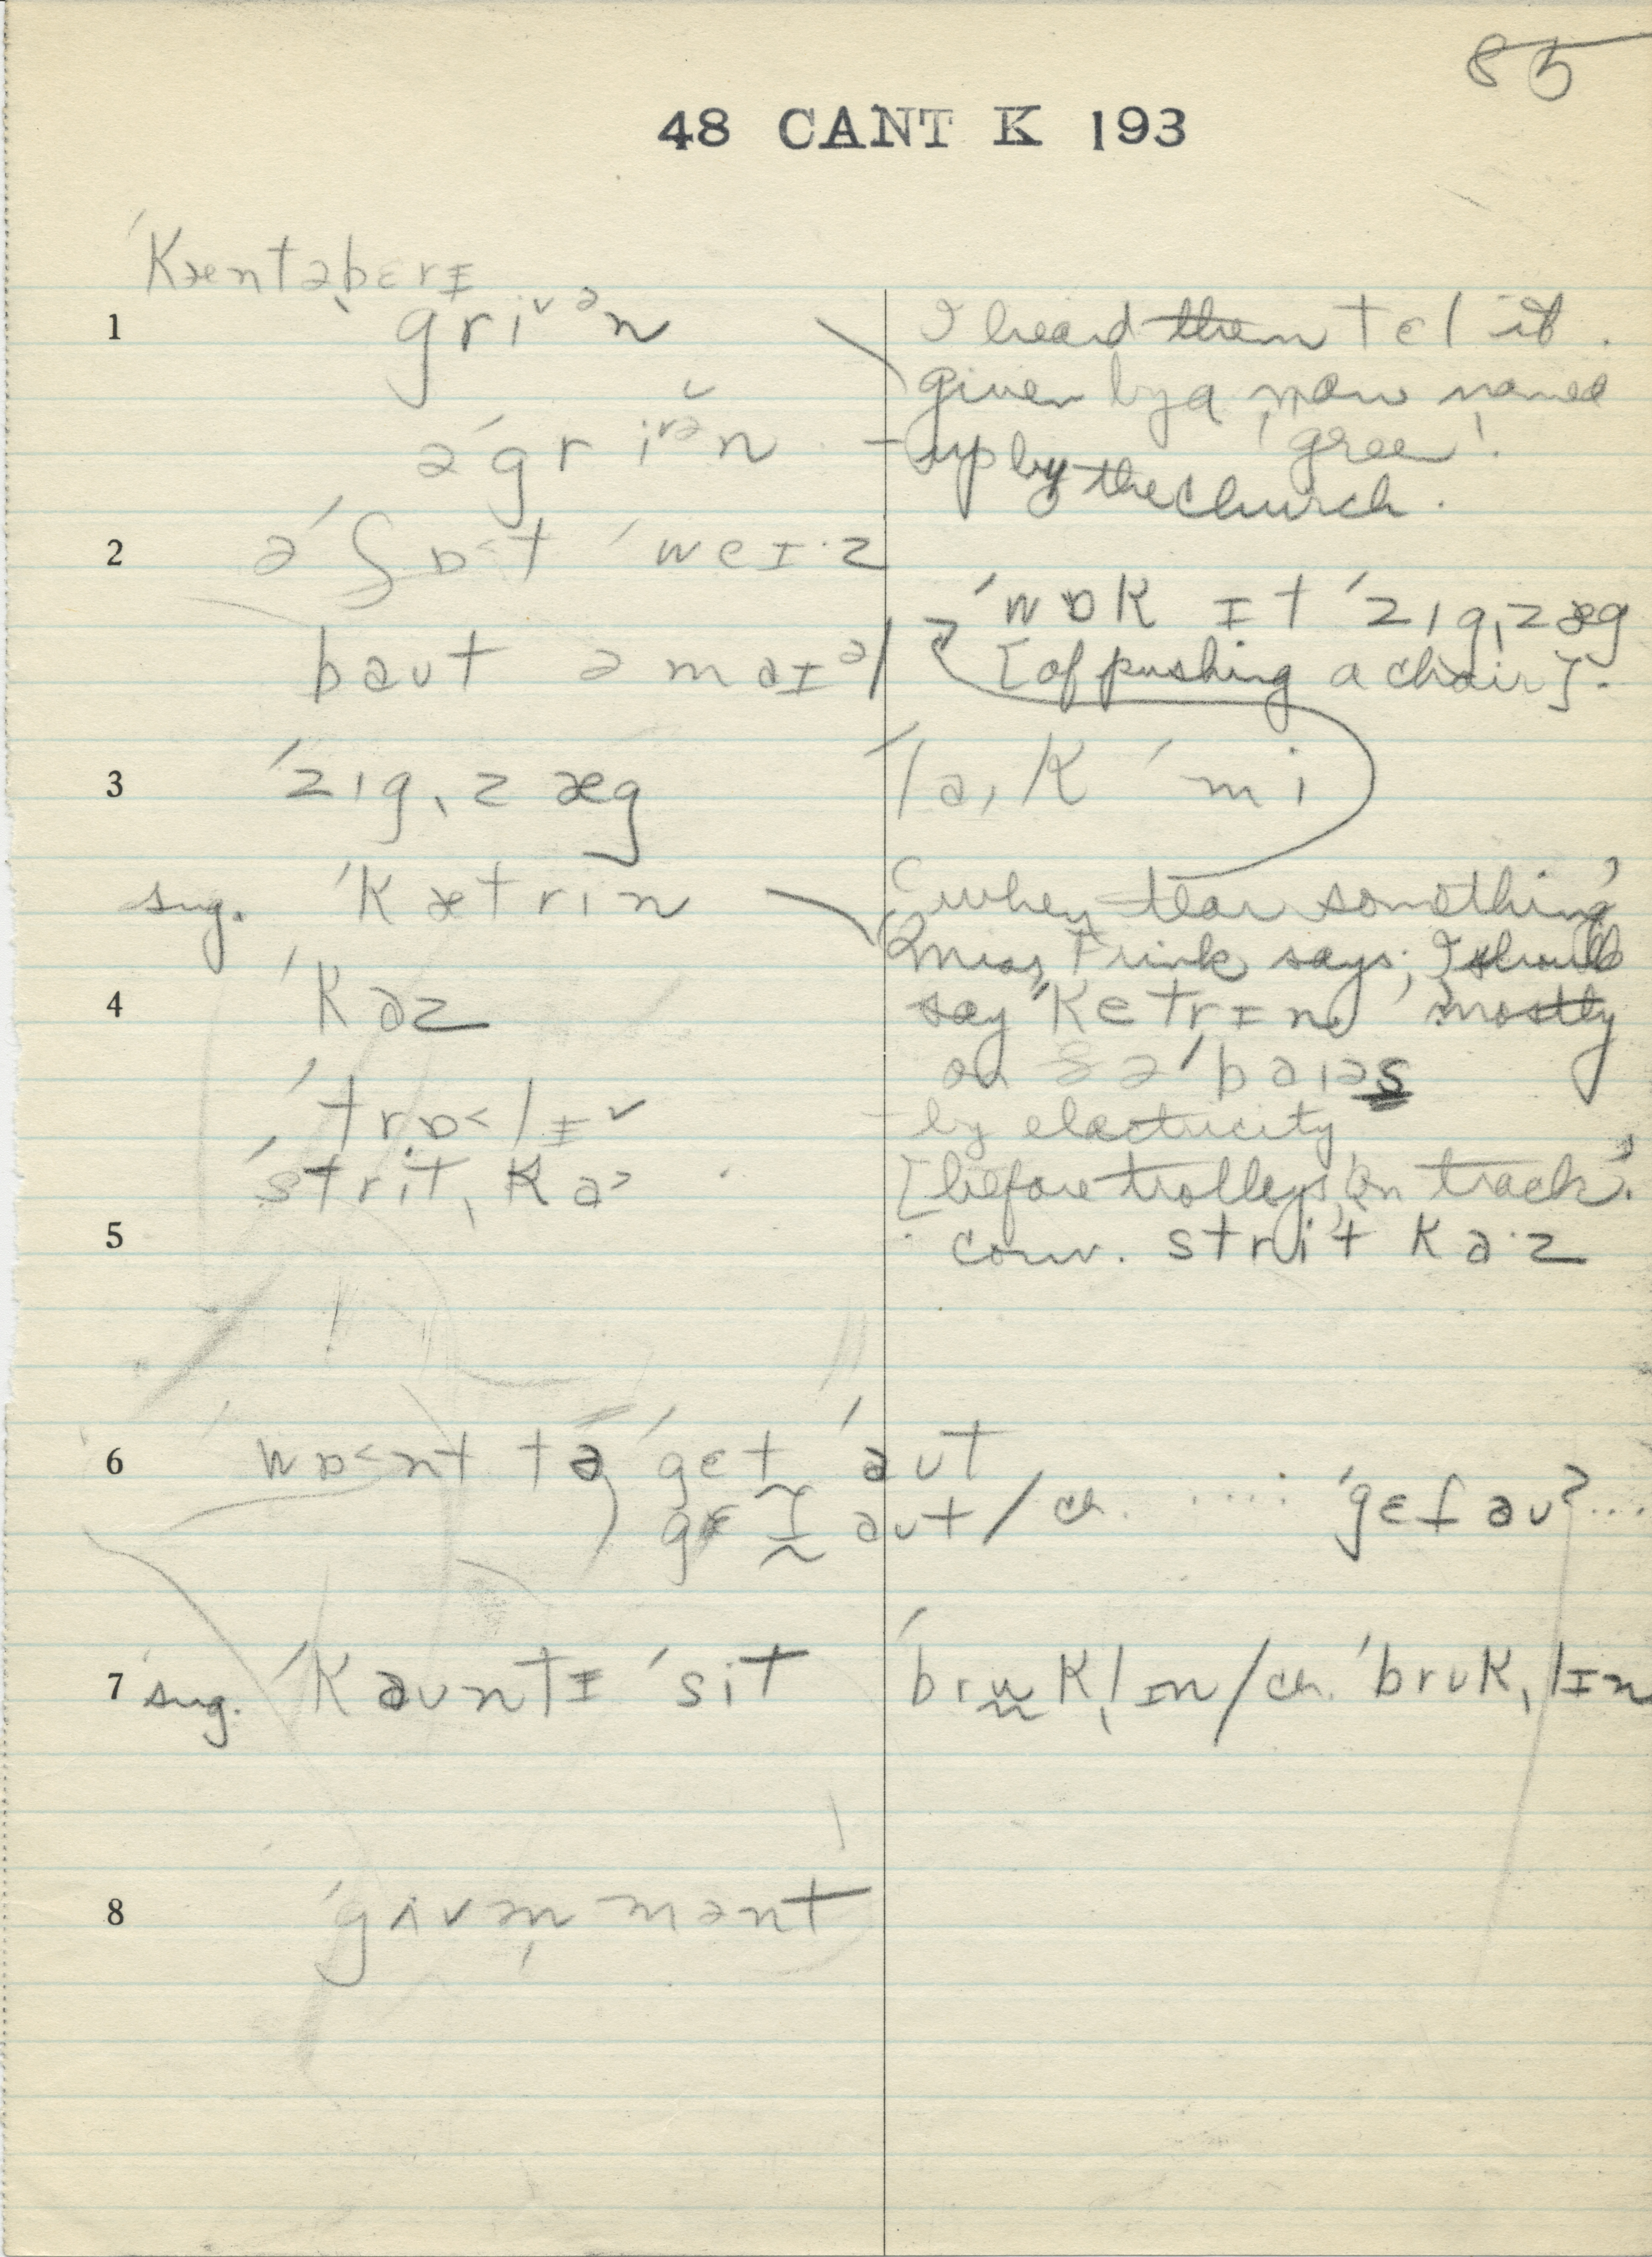 85
48 CANT K 193
ˈkæntəˌbɛrɪ
1 griᵛᵊn
I heard them tɛl it.
given by a man named
əˈgriᵛᵊn
'gree'.
up by the church.
2 ə ˈʃɒ˂t ˈweɪ·z
ˈwɒk ɪt ˈzɪgˌzæg
baut ə maɪᵊl
[of pushing a chair].
3 ˈzɪgˌzæg
ˈla,k ˈmi
sug. ˈkætrin
when tear something
Miss Frink says; I should
4 ˈkaz
say "ˈketrɪn" mostly
on ðə ˈbaɪəs
ˈtrɒ˂lɪ˅
by electricity
ˈstritˌka˃
[before trolleys, on track.
5
conv. strit ka·z
6 wɒ˂nt tə ˈgɛt ˈaut
gɛt aut / ch. ..... ˈgɛt au? ....
7 sug. ˈkauntɪ ˈsit
ˈbrukˌlɪn / ch. ˈbrukˌlɪn
8 ˈgʌvən̩mənt